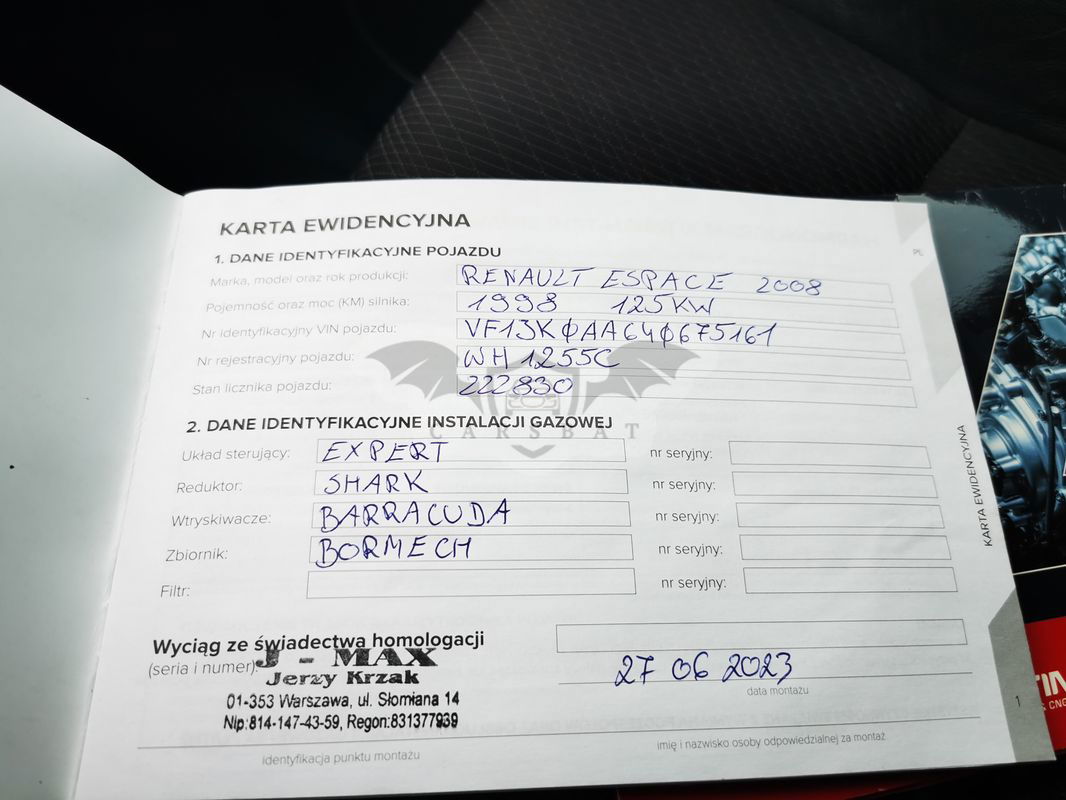 KARTA EWIDENCYJNA
PL
1. DANE IDENTYFIKACYJNE POJAZDU
Marka, model oraz rok produkcji: RENAULT ESPACE 2008
Pojemność oraz moc (KM) silnika: 1998 125KW
Nr identyfikacyjny VIN pojazdu: VF13KØAA64Ø675161
Nr rejestracyjny pojazdu: WH1255C
Stan licznika pojazdu: 222830
CARSBAT
2. DANE IDENTYFIKACYJNE INSTALACJI GAZOWEJ
Układ sterujący: EXPERT nr seryjny:
Reduktor: SHARK nr seryjny:
Wtryskiwacze: BARRACUDA nr seryjny:
Zbiornik: BORMECH nr seryjny:
Filtr: nr seryjny:
KARTA EWIDENCYJNA
Wyciąg ze świadectwa homologacji
(seria i numer):
J - MAX
Jerzy Krzak
01-353 Warszawa, ul. Słomiana 14
Nip:814-147-43-59, Regon:831377939
27 06 2023
data montażu
identyfikacja punktu montażu
imię i nazwisko osoby odpowiedzialnej za montaż
1
CNG